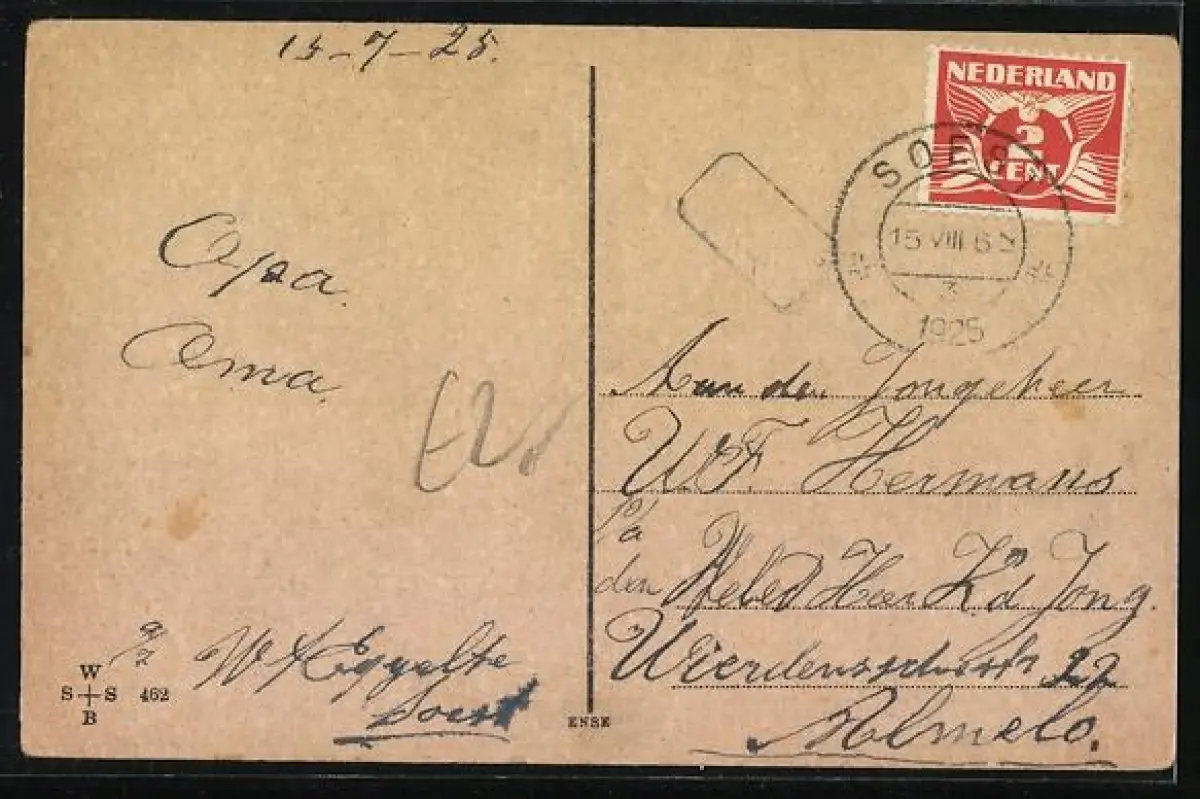 15-7-25.
NEDERLAND
2
CENT
SOEST
15 VIII 6
1925
Opa.
Oma.
Aan den Jongeheer
W.F. Hermans
p/a
den WelEd Heer K. d Jong.
Wierdensestraat 22
Almelo.
W
S S 462
B
Eggelte
Soest
ENSE